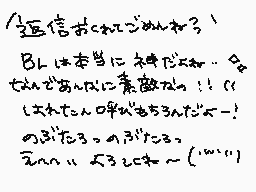 返信おくれてごめんねっ
BLは本当に神だよね…
なんであんなに素敵なの!!
はれたん呼びもちろんだよー!
のぶたろっのぶたろっ
えへへ いよろしくね〜(´･ω･`)